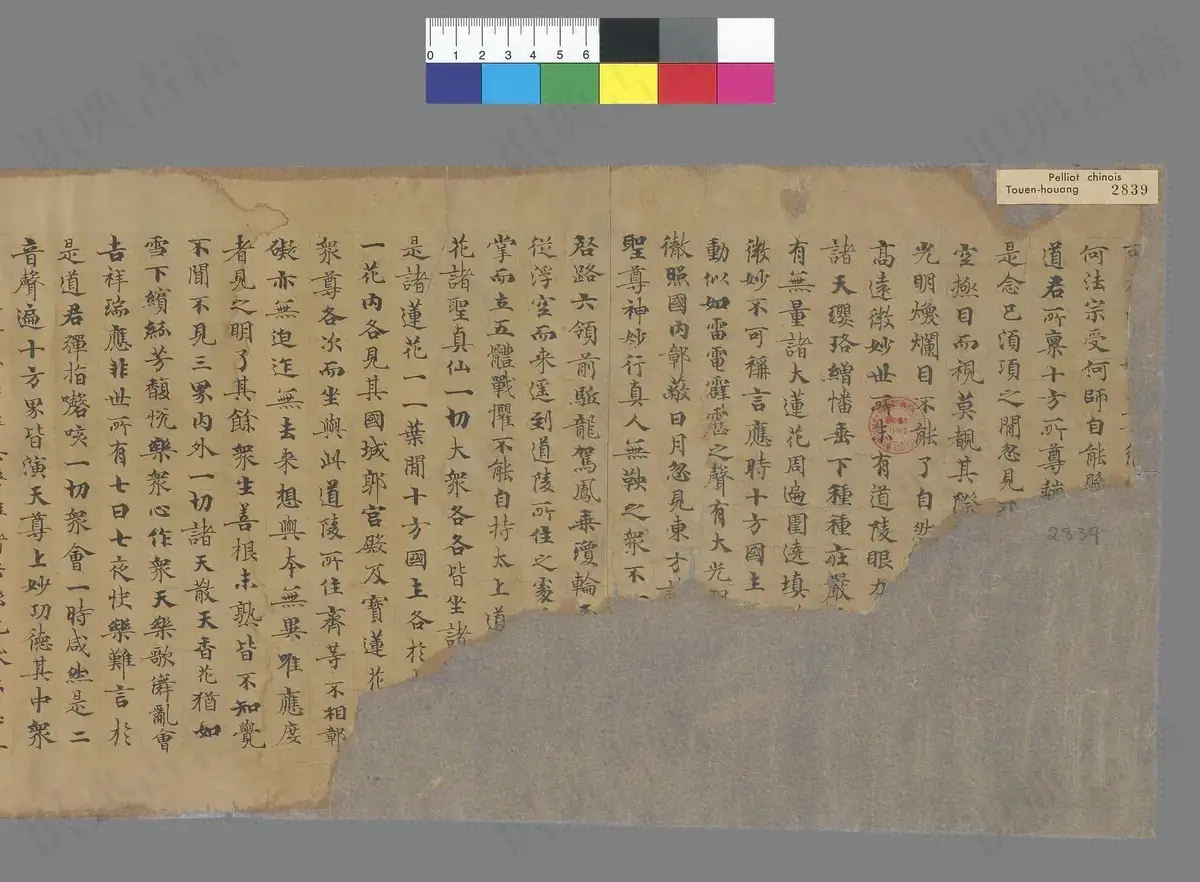 Pelliot chinois
Touen-houang 2839
0 1 2 3 4 5 6
2839
何法宗受何師自能
道君所稟十方所尊
是念已須項之間忽見
空極目而視莫覩其際
光明煥爛目不能了自然
高遠微妙世所未有道陵眼力
諸天瓔珞繒幡垂下種種莊嚴
有無量諸大蓮花周遍圍遶填
微妙不可稱言應時十方國主
動似如雷電霹靂之聲有大光明
徹照國內鄣蔽日月忽見東方
聖尊神妙行真人無鞅之衆不
啓路六領前駈龍駕鳳乘瓊輪
從浮空而來逕到道陵所住之處
掌而立五體戰懼不能自持太上道
花諸聖真仙一切大衆各各皆坐諸
是諸蓮花一一葉間十方國主各於
一花內各見其國城郭官殿及寶蓮花
衆尊各次而坐與此道陵所住齊等不相鄣
礙亦無迫迮無去來想與本無異唯應度
者見之明了其餘衆生善根未熟皆不知覺
不聞不見三界內外一切諸天散天香花猶如
雪下繽紛芳馥悅樂衆心作衆天樂歌儛亂會
吉祥瑞應非世所有七日七夜快樂難言於
是道君彈指謦咳一切衆會一時咸然是二
音聲遍十方界皆演天尊上妙功德其中衆